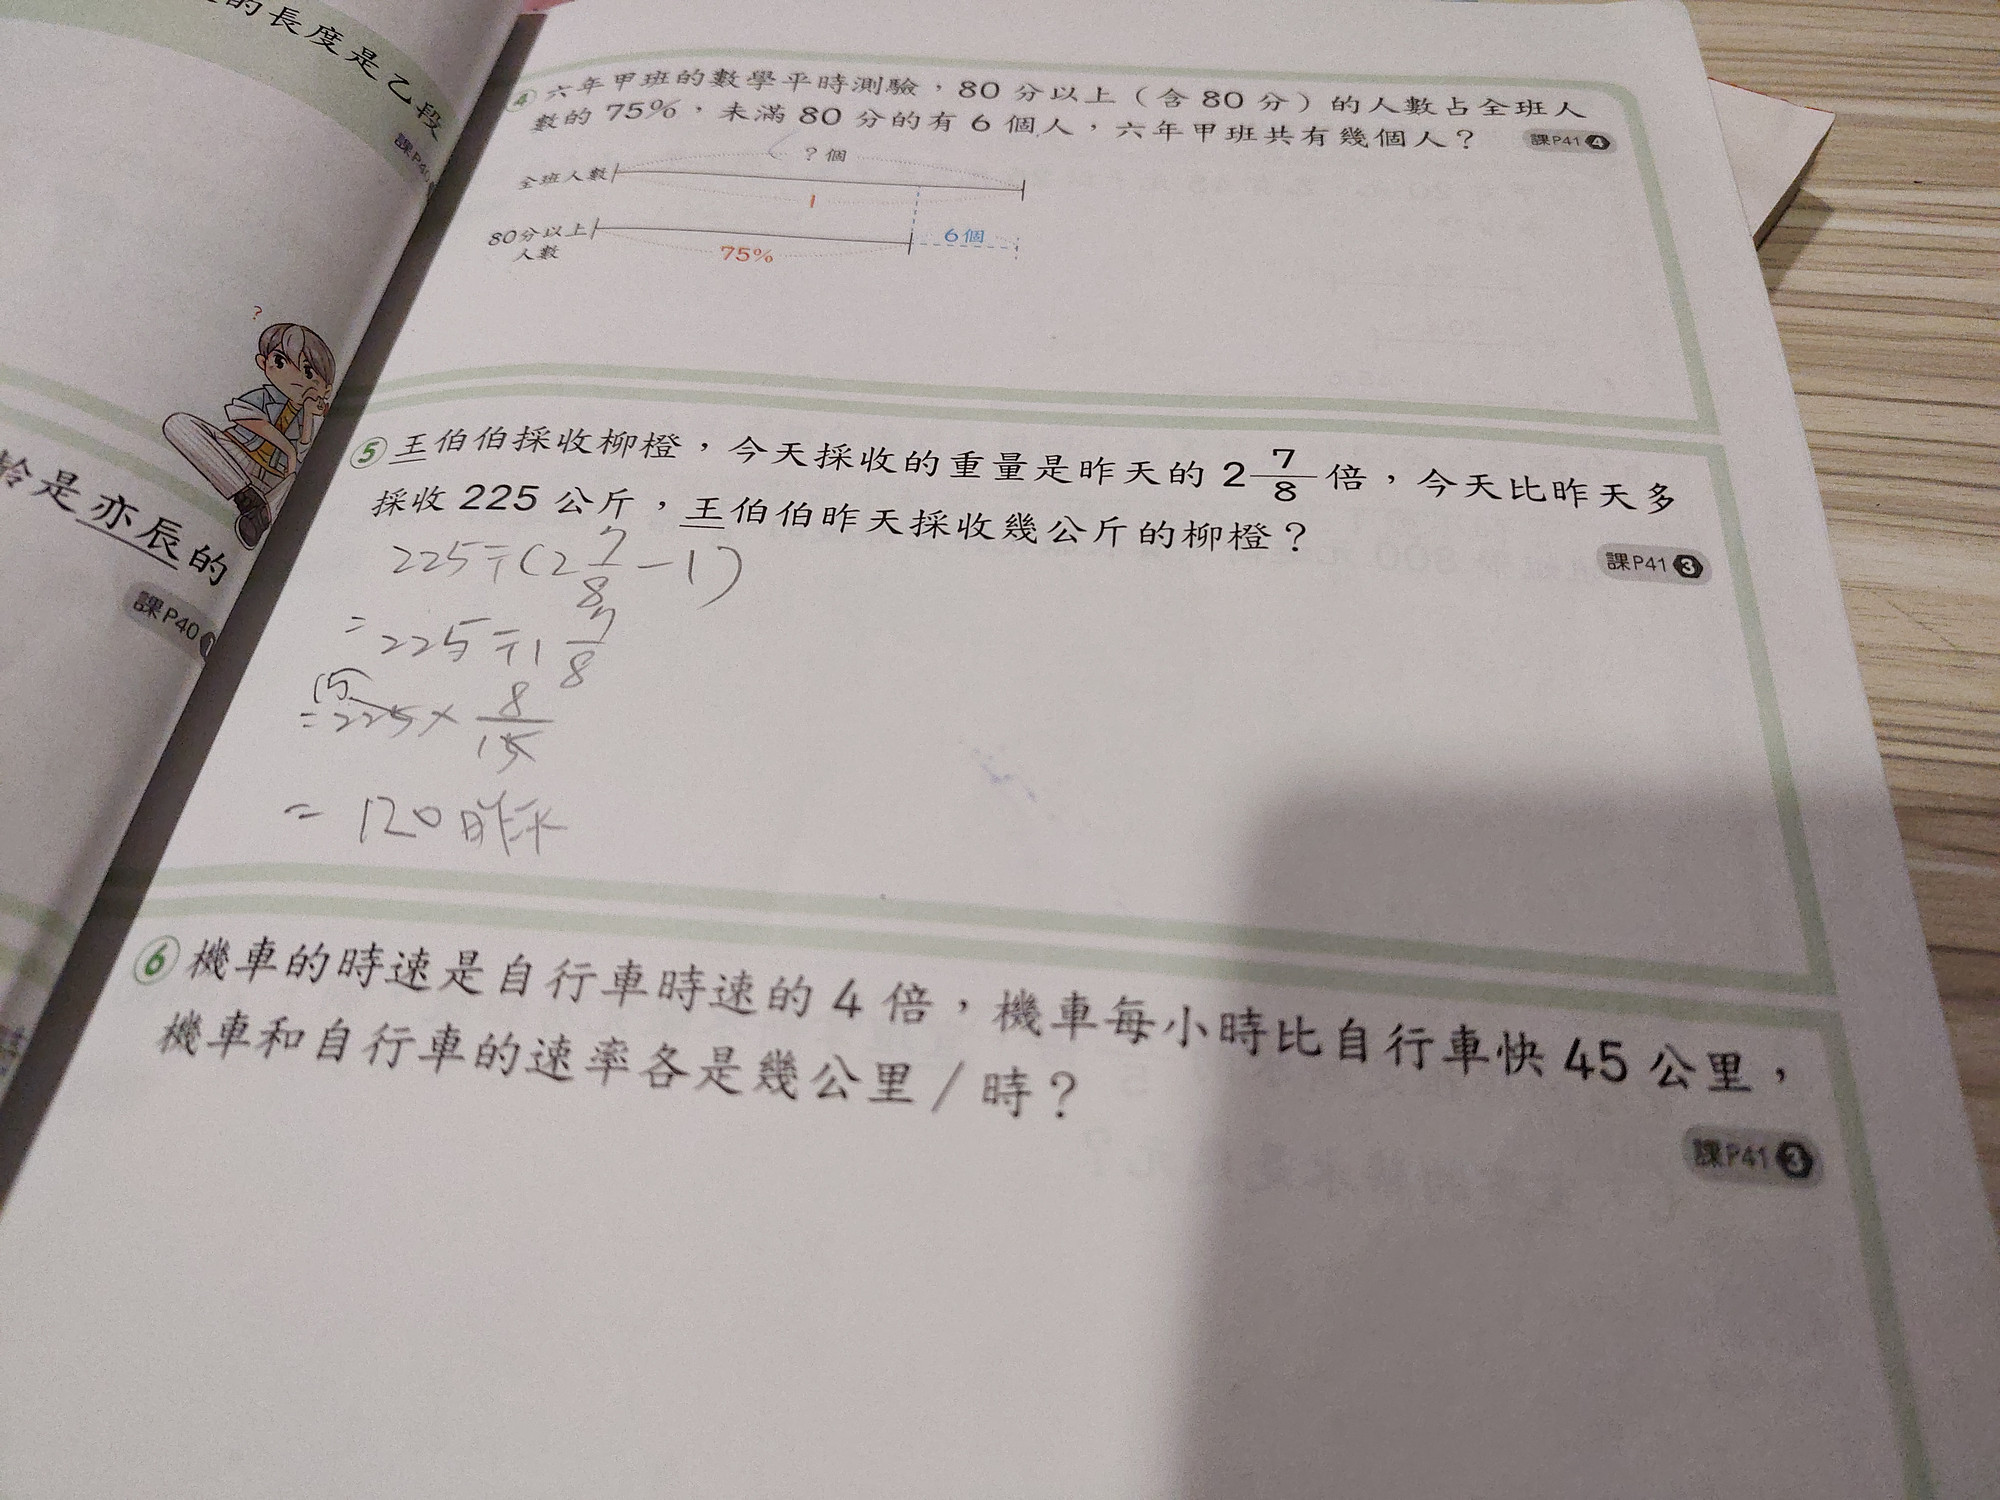 的長度是乙段
課P40
齡是亦辰的
課P40 1
④ 六年甲班的數學平時測驗，80 分以上（含 80 分）的人數占全班人
數的 75%，未滿 80 分的有 6 個人，六年甲班共有幾個人？
課P41 4
? 個
全班人數
1
80分以上
人數
75%
6個
?
⑤ 王伯伯採收柳橙，今天採收的重量是昨天的 2 7/8 倍，今天比昨天多
採收 225 公斤，王伯伯昨天採收幾公斤的柳橙？
課P41 3
225÷(2 7/8 -1)
= 225÷1 7/8
15
= 225× 8/15
= 120 昨天
⑥ 機車的時速是自行車時速的 4 倍，機車每小時比自行車快 45 公里，
機車和自行車的速率各是幾公里／時？
課P41 3